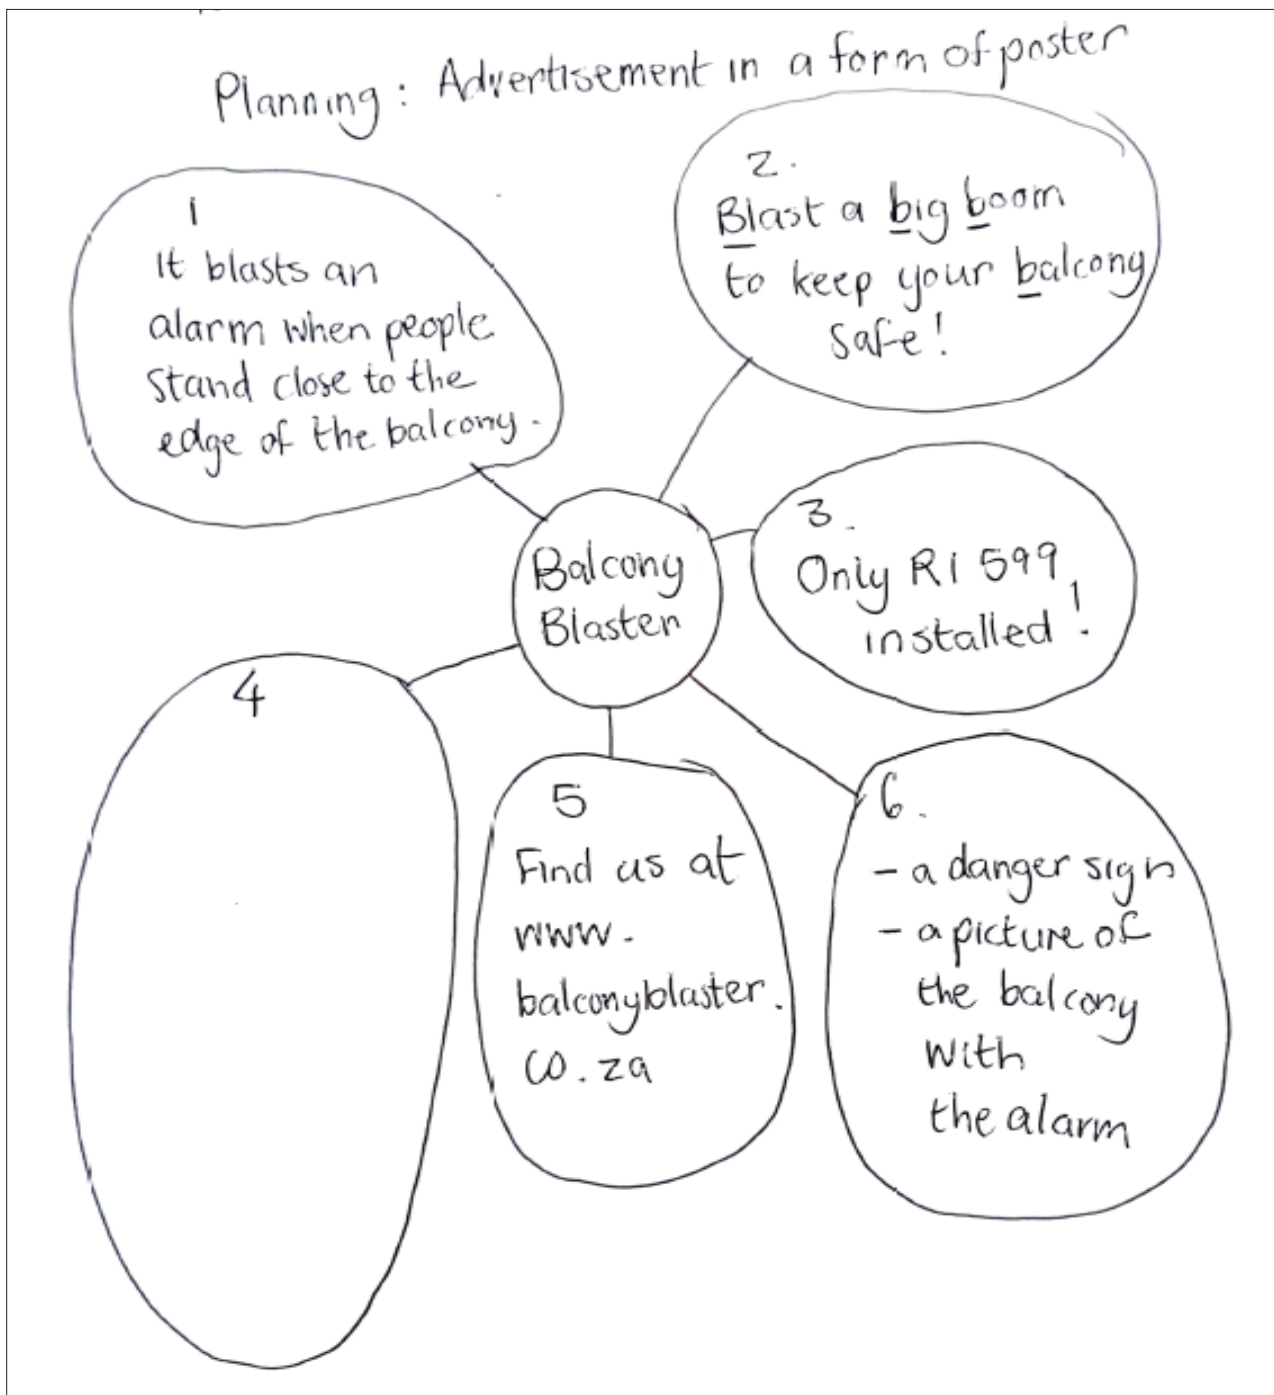 Planning : Advertisement in a form of poster
1
It blasts an
alarm when people
stand close to the
edge of the balcony.
2.
Blast a big boom
to keep your balcony
safe!
Balcony
Blaster
3.
Only R1 599
installed!
4
5
Find us at
www.
balconyblaster.
co.za
6.
- a danger sign
- a picture of
the balcony
with
the alarm